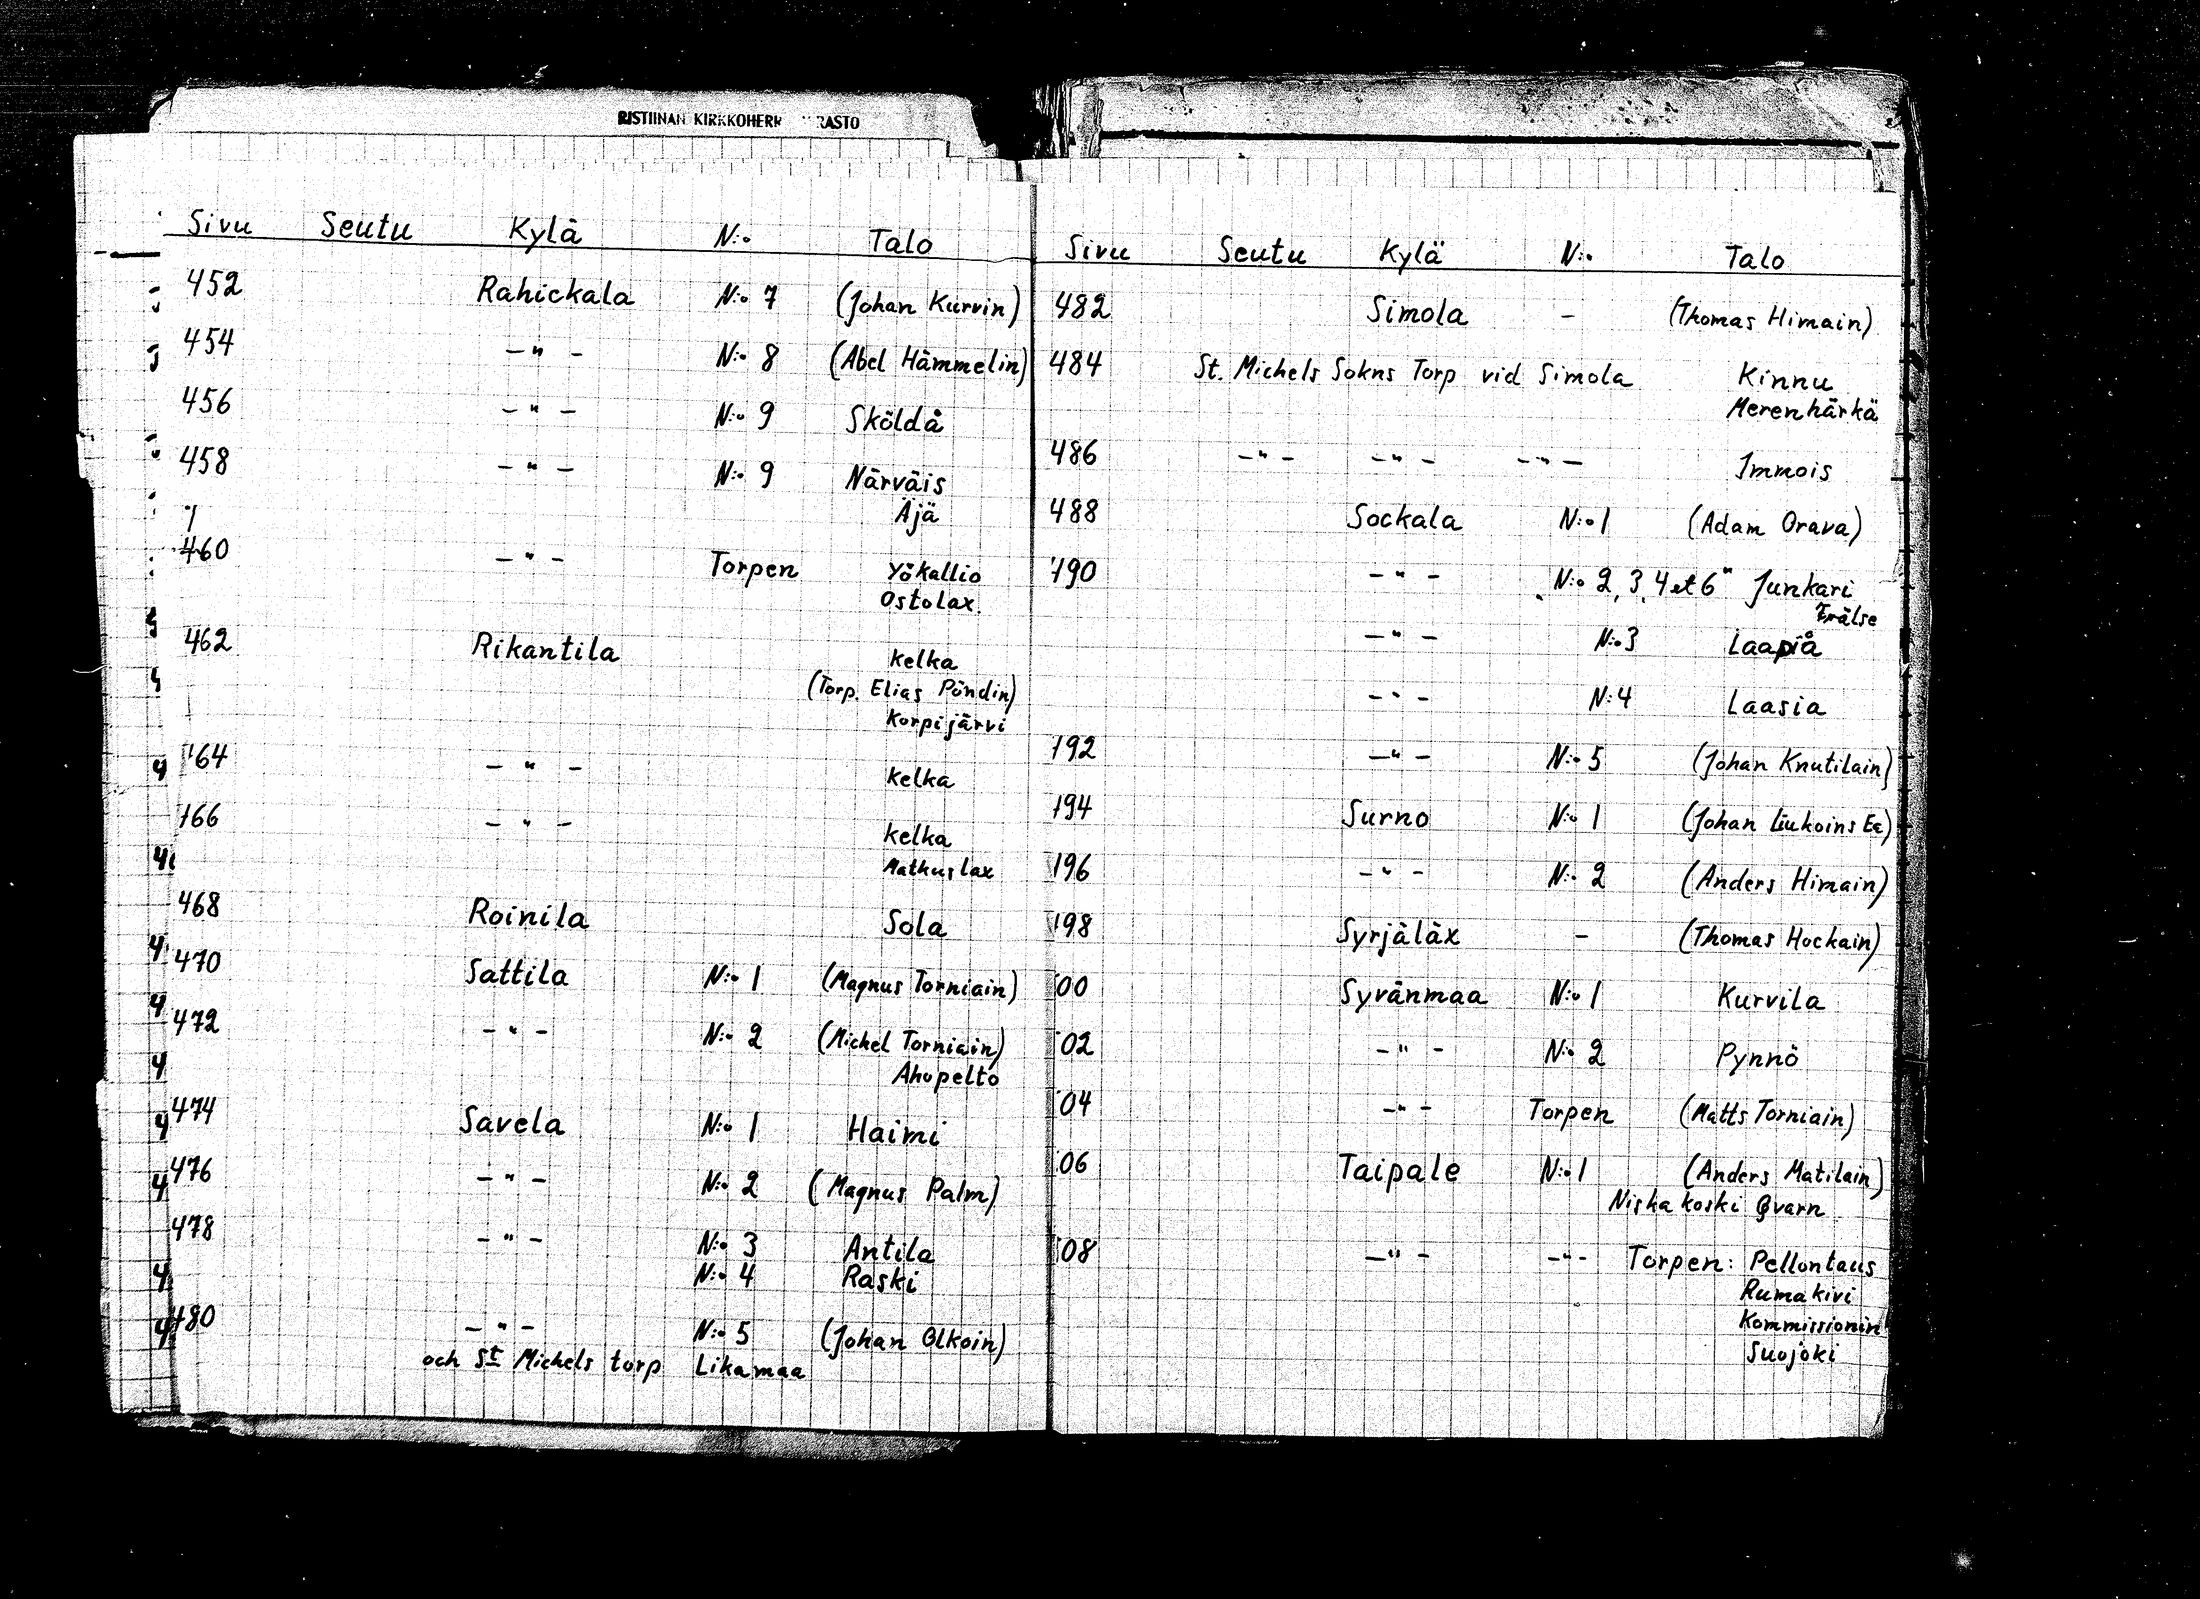 RISTIINAN KIRKKOHERR RASTO
Sivu Seutu Kylä N:o Talo
452 Rahickala N:o 7 (Johan Kurvin)
454 –"– N:o 8 (Abel Hämmelin)
456 –"– N:o 9 Sköldå
458 –"– N:o 9 Närväis
Äjä
460 –"– Torpen Yökallio
Ostolax.
462 Rikantila Kelka
(Torp. Elias Pöndin)
Korpijärvi
464 –"– Kelka
466 –"– Kelka
Mathuslax
468 Roinila Sola
470 Sattila N:o 1 (Magnus Torniain)
472 –"– N:o 2 (Michel Torniain)
Ahopelto
474 Savela N:o 1 Haimi
476 –"– N:o 2 (Magnus Palm)
478 –"– N:o 3 Antila
N:o 4 Raski
480 –"– N:o 5 (Johan Olkoin)
och St Michels torp Likamaa
Sivu Seutu Kylä N:o Talo
482 Simola – (Thomas Himain)
484 St. Michels Sokns Torp vid Simola Kinnu
Merenhärkä
486 –"– –"– –"– Immois
488 Sockala N:o 1 (Adam Orava)
490 –"– N:o 2, 3, 4 et 6" Junkari
Frälse
–"– N:o 3 Laapiå
–"– N:4 Laasia
492 –"– N:o 5 (Johan Knutilain)
494 Surno N:o 1 (Johan Liukoins Ea)
496 –"– N:o 2 (Anders Himain)
498 Syrjäläx – (Thomas Hockain)
00 Syvänmaa N:o 1 Kurvila
02 –"– N:o 2 Pynnö
04 –"– Torpen (Matts Torniain)
06 Taipale N:o 1 (Anders Matilain)
Niskakoski Qvarn
08 –"– –"– Torpen: Pellontaus
Rumakivi
Kommissionin
Suojoki